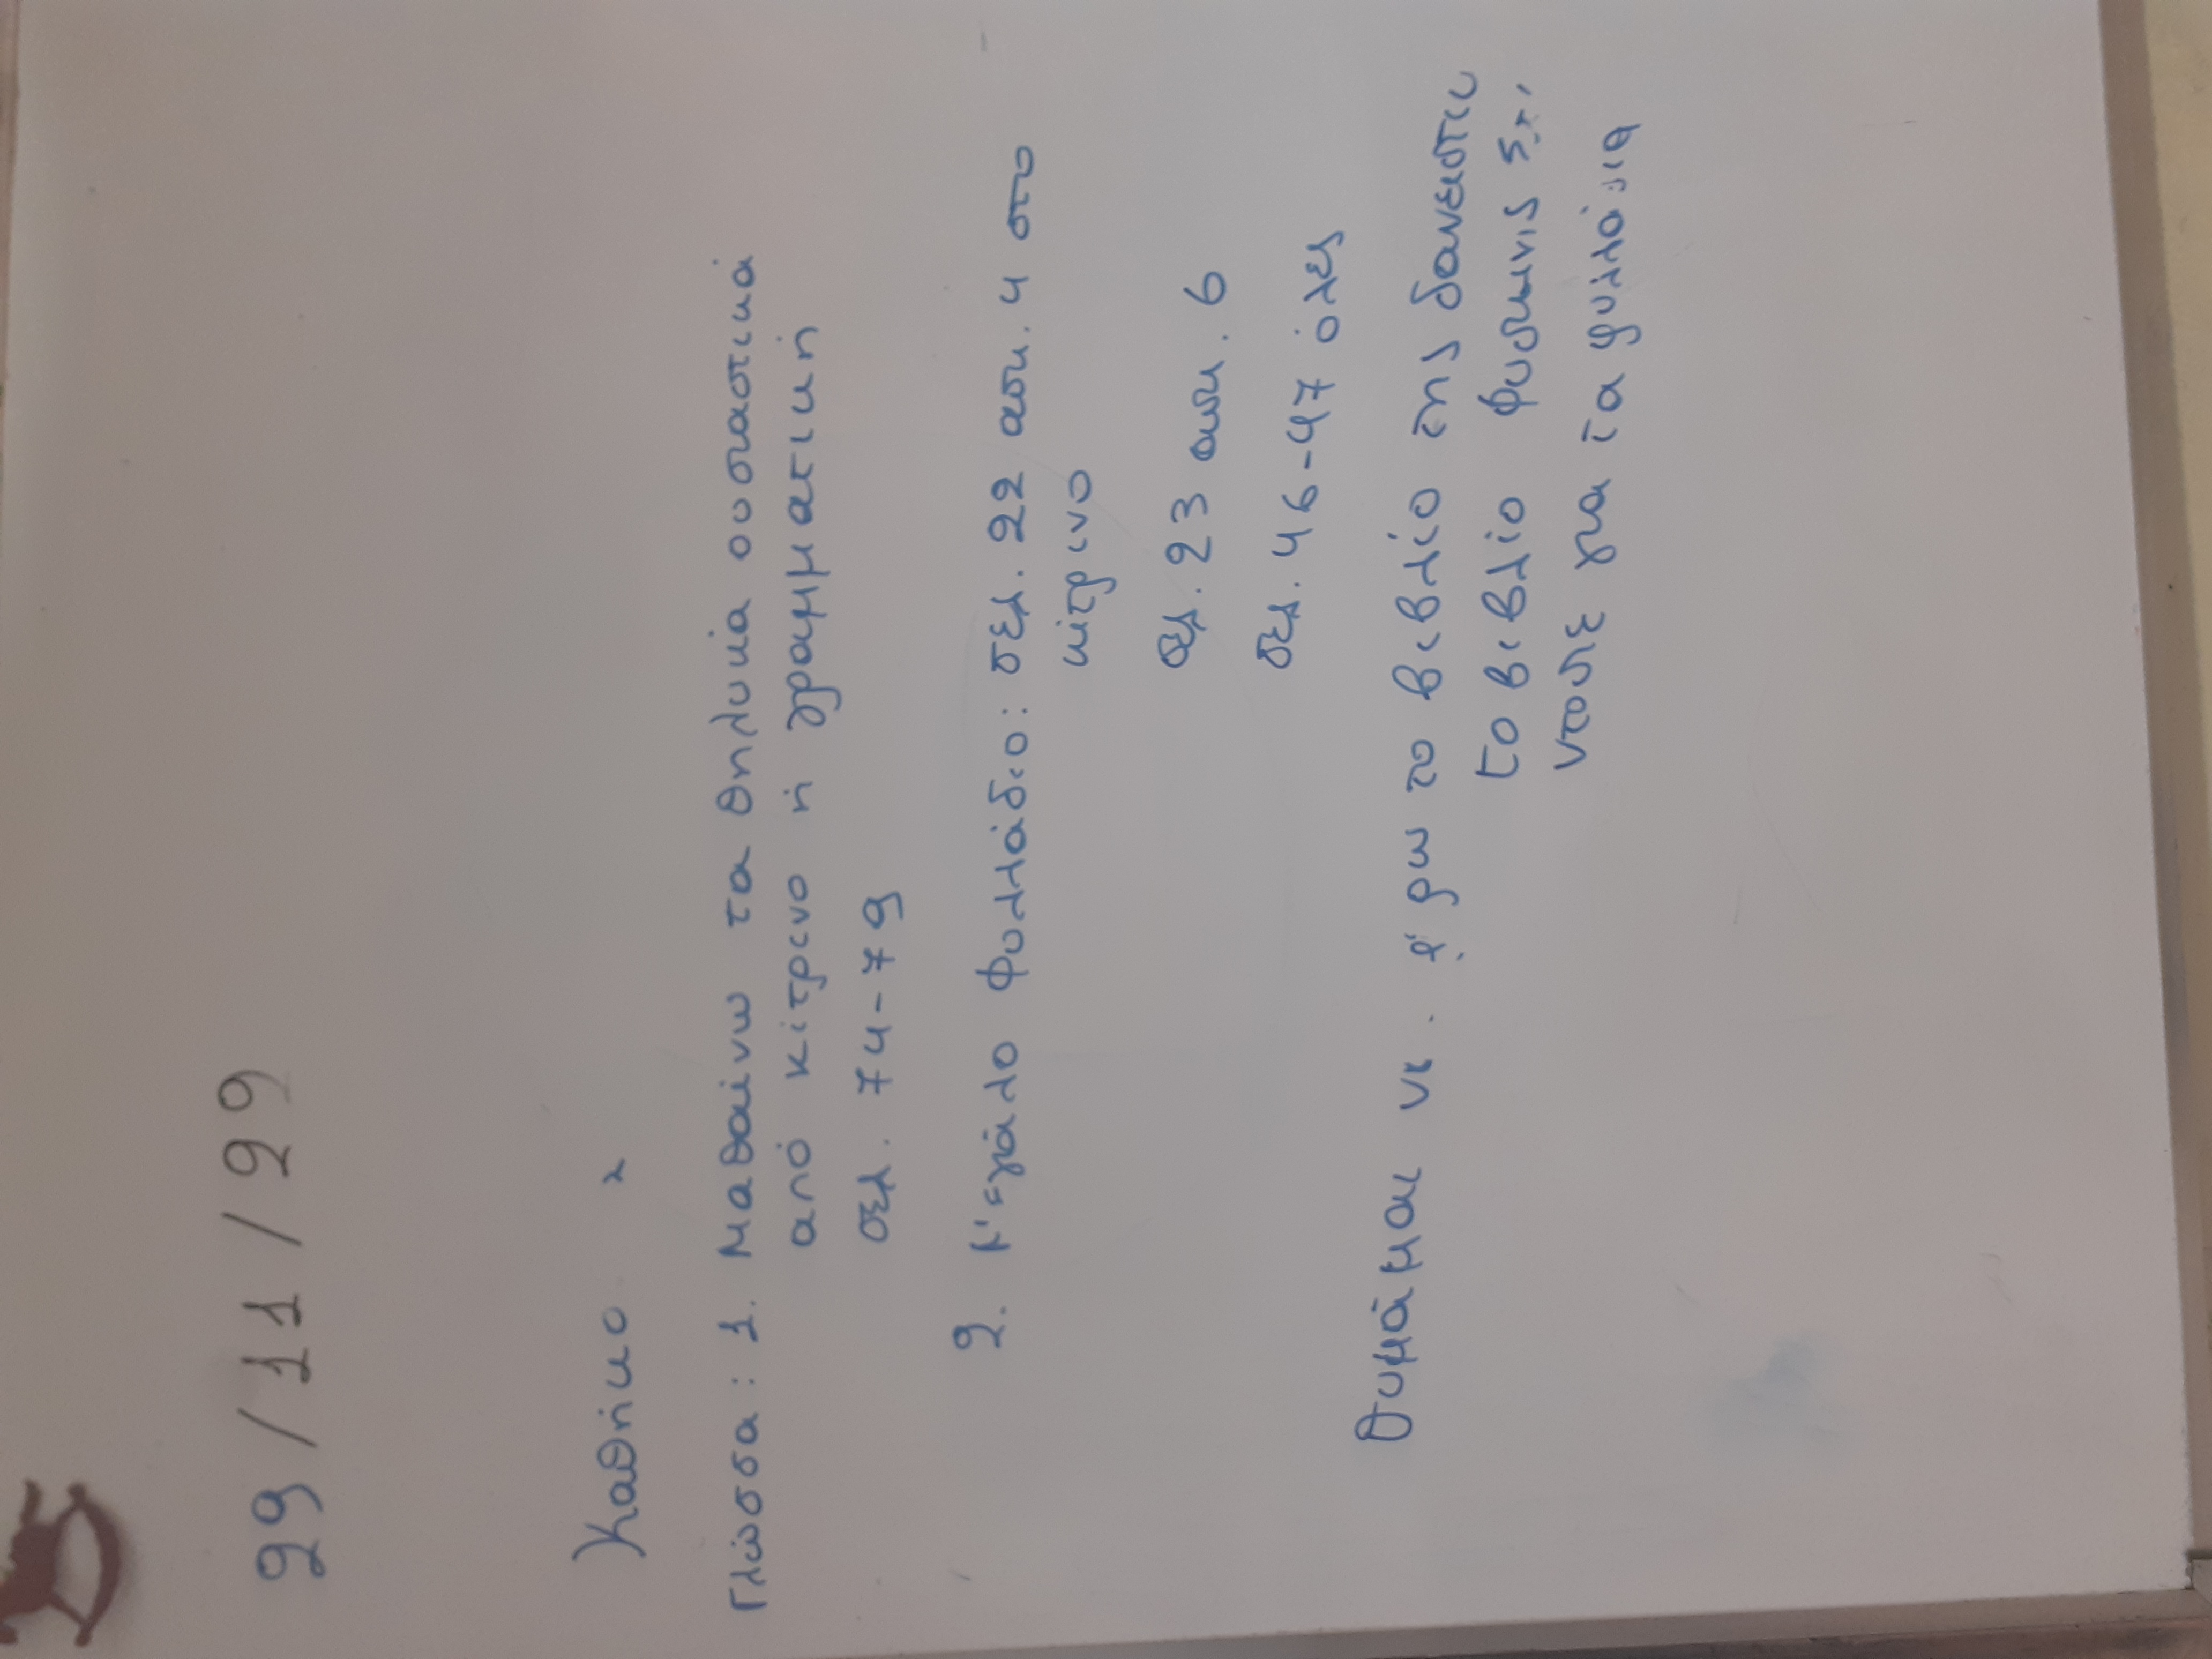 29/11/22
Καθήκο
Γλώσσα: 1. Μαθαίνω τα θηλυκά ουσιαστικά
από κίτρινο ή γραμματική
σελ. 74-79
2. Μεγάλο φυλλάδιο: σελ. 22 ασκ. 4 στο
κίτρινο
σελ. 23 ασκ. 6
σελ. 46-47 όλες
Θυμάμαι το βιβλίο της δανειστικ
το βιβλίο Φυσικής
ντοσιέ για τα φυλλάδια